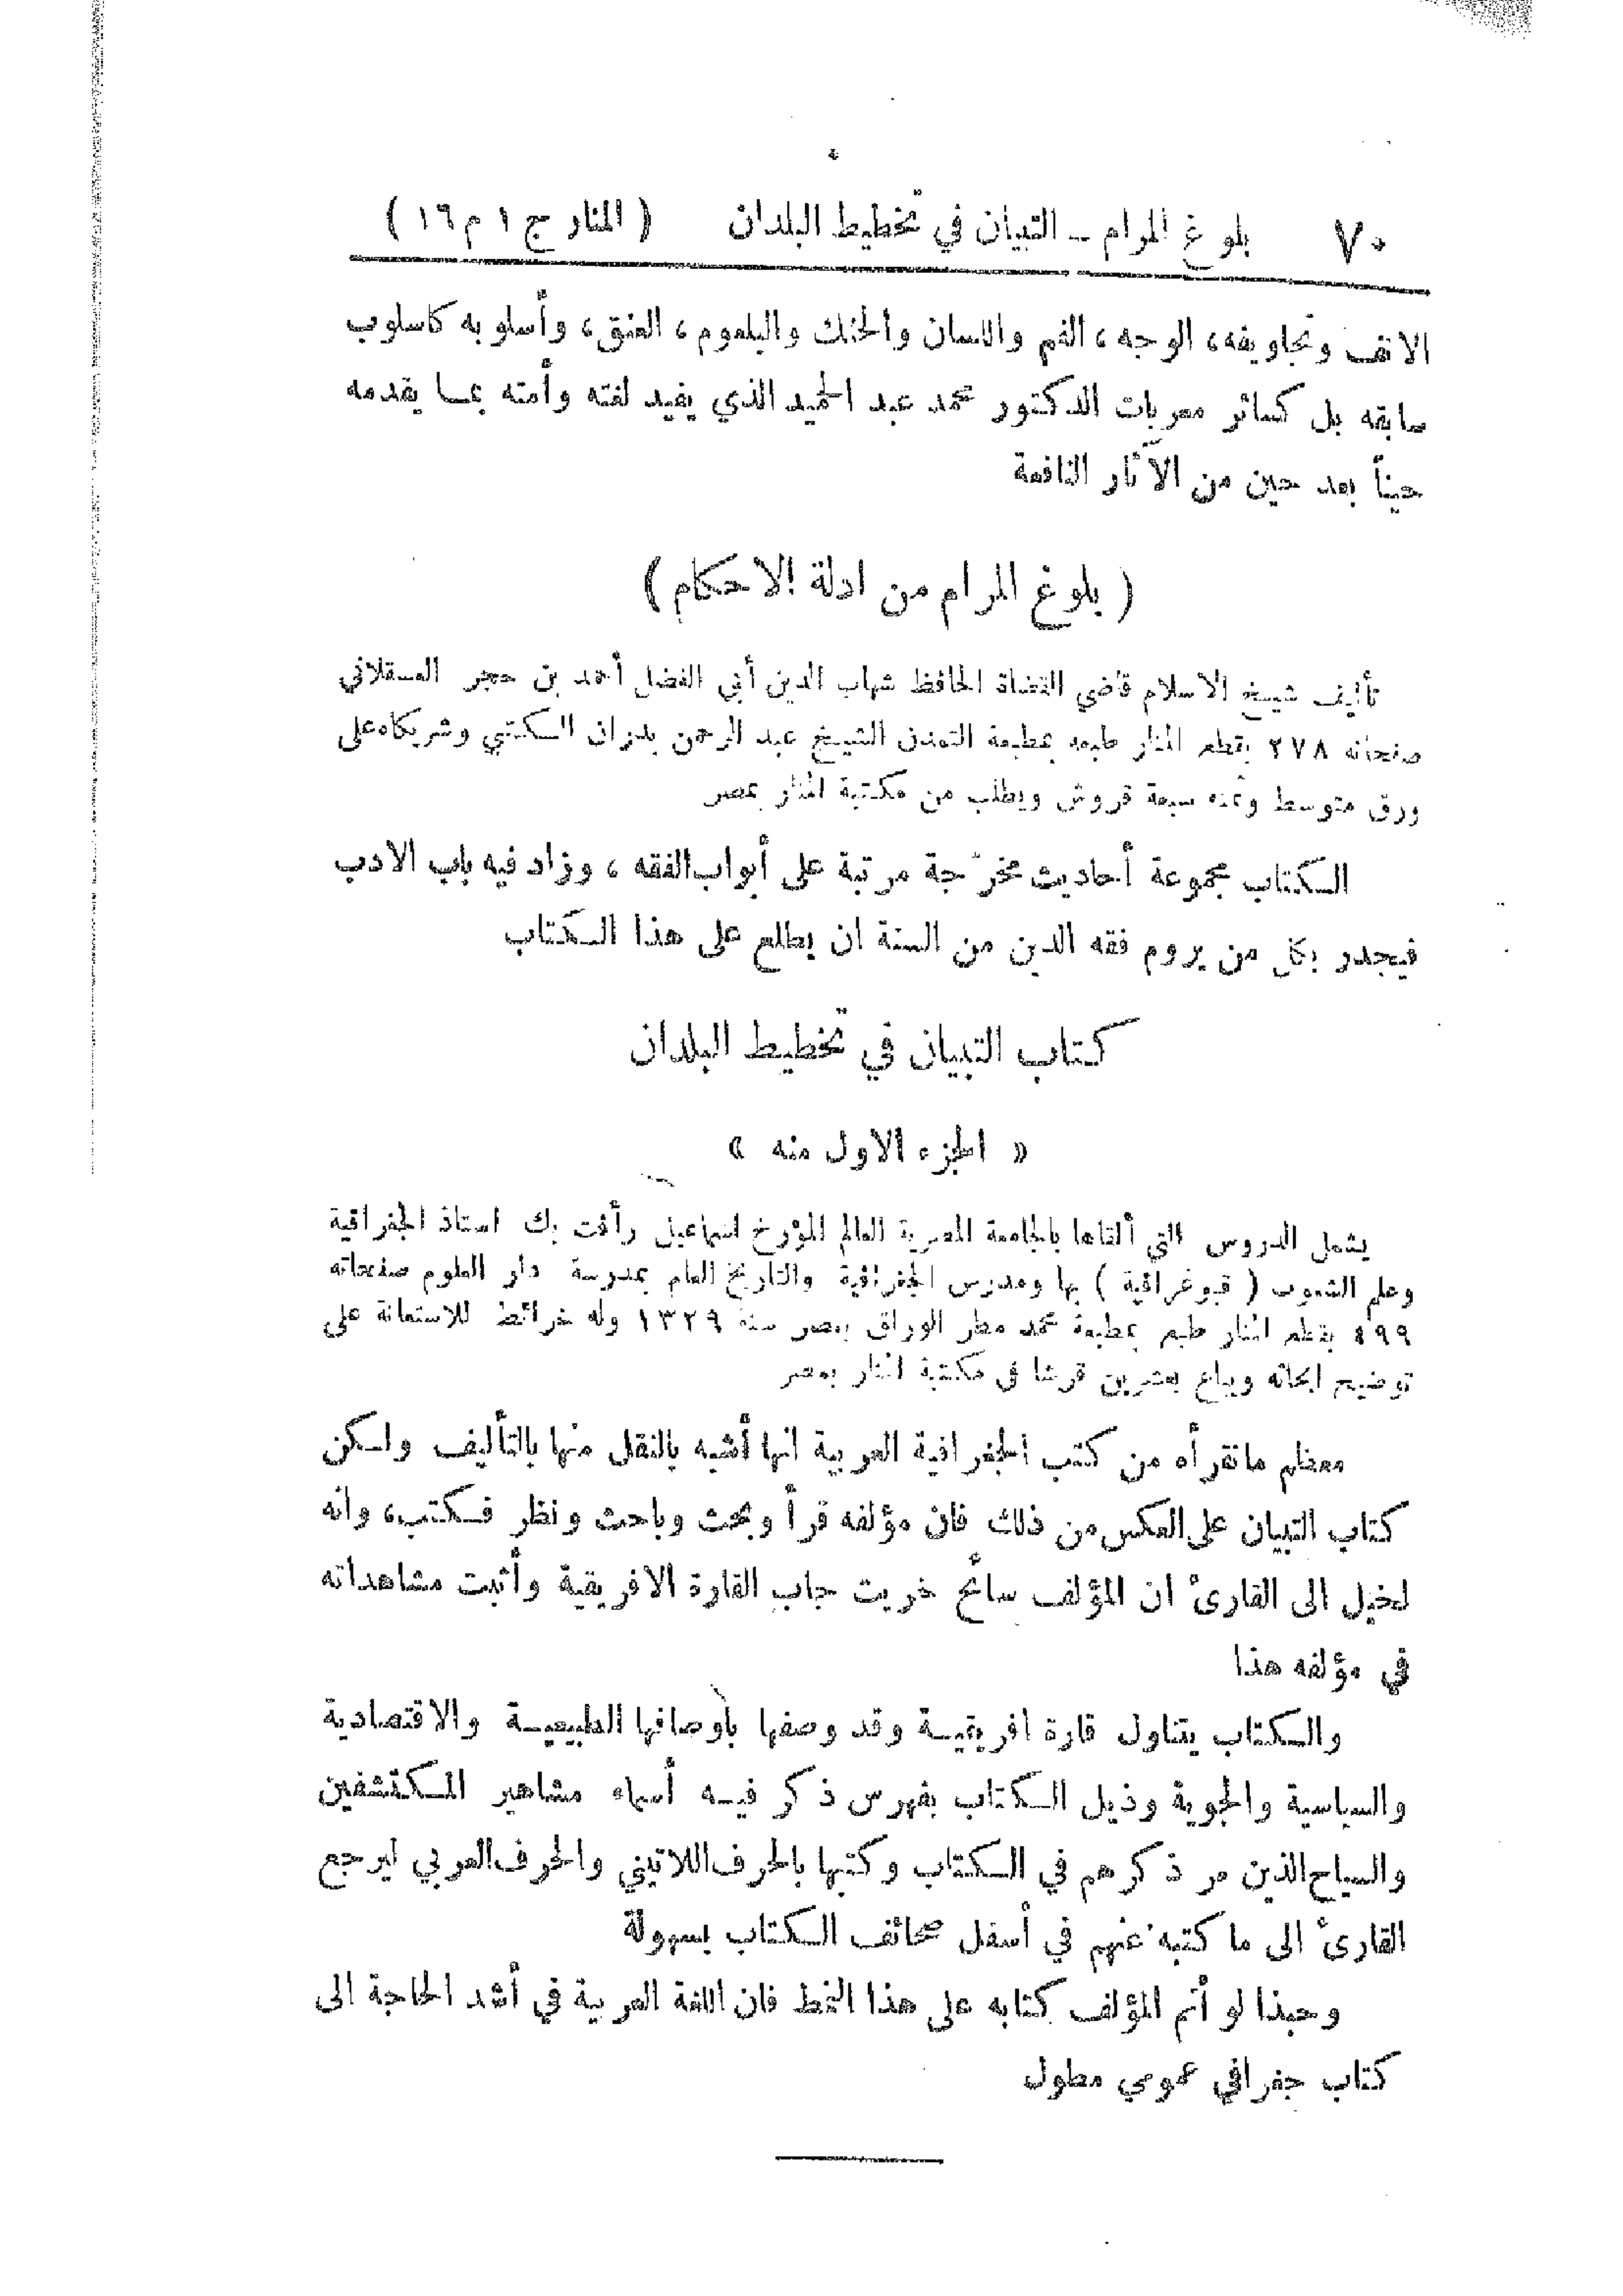 ٧٠ بلوغ المرام ـ التبيان في تخطيط البلدان ( المنار ج ١ م ١٦ )
الانف وتجاويفه، الوجه، الفم واللسان والحنك والبلعوم، العنق، وأسلوبه كاسلوب
سابقه بل كسائر معربات الدكتور محمد عبد الحميد الذي يفيد لغته وأمته بما يقدمه
حيناً بعد حين من الآثار النافعة
( بلوغ المرام من ادلة الاحكام )
تأليف شيخ الاسلام قاضي القضاة الحافظ شهاب الدين أبي الفضل أحمد بن حجر العسقلاني
صفحاته ٢٧٨ بقطع المنار طبعه بمطبعة التمدن الشيخ عبد الرحمن بدران الكتبي وشريكاه على
ورق متوسط وثمنه سبعة قروش ويطلب من مكتبة المنار بمصر
الكتاب مجموعة أحاديث مخرّجة مرتبة على أبواب الفقه ، وزاد فيه باب الادب
فيجدر بكل من يروم فقه الدين من السنة ان يطلع على هذا الكتاب
كتاب التبيان في تخطيط البلدان
« الجزء الاول منه »
يشمل الدروس التي ألقاها بالجامعة المصرية العالم المؤرخ اسماعيل رأفت بك استاذ الجغرافية
وعلم الشعوب ( قبوغرافية ) بها ومدرس الجغرافية والتاريخ العام بمدرسة دار العلوم صفحاته
٤٩٩ بقطع المنار طبع بمطبعة محمد مطر الوراق بمصر سنة ١٣٢٩ وله خرائط للاستعانة على
توضيح ابحاثه ويباع بعشرين قرشا في مكتبة المنار بمصر
معظم ما نقرأه من كتب الجغرافية العربية انها أشبه بالنقل منها بالتأليف ولكن
كتاب التبيان على العكس من ذلك فان مؤلفه قرأ وبحث وباحث ونظر فكتب، وانه
ليخيل الى القارئ ان المؤلف سائح خريت جاب القارة الافريقية وأثبت مشاهداته
في مؤلفه هذا
والكتاب يتناول قارة افريقيـة وقد وصفها بأوصافها الطبيعيـة والاقتصادية
والسياسية والجوية وذيل الكتاب بفهرس ذكر فيـه أسماء مشاهير المكتشفين
والسياح الذين مر ذكرهم في الكتاب وكتبها بالحرف اللاتيني والحرف العربي ليرجع
القارئ الى ما كتبه عنهم في أسفل صحائف الكتاب بسهولة
وحبذا لو أتم المؤلف كتابه على هذا النمط فان اللغة العربية في أشد الحاجة الى
كتاب جغرافي عمومي مطول